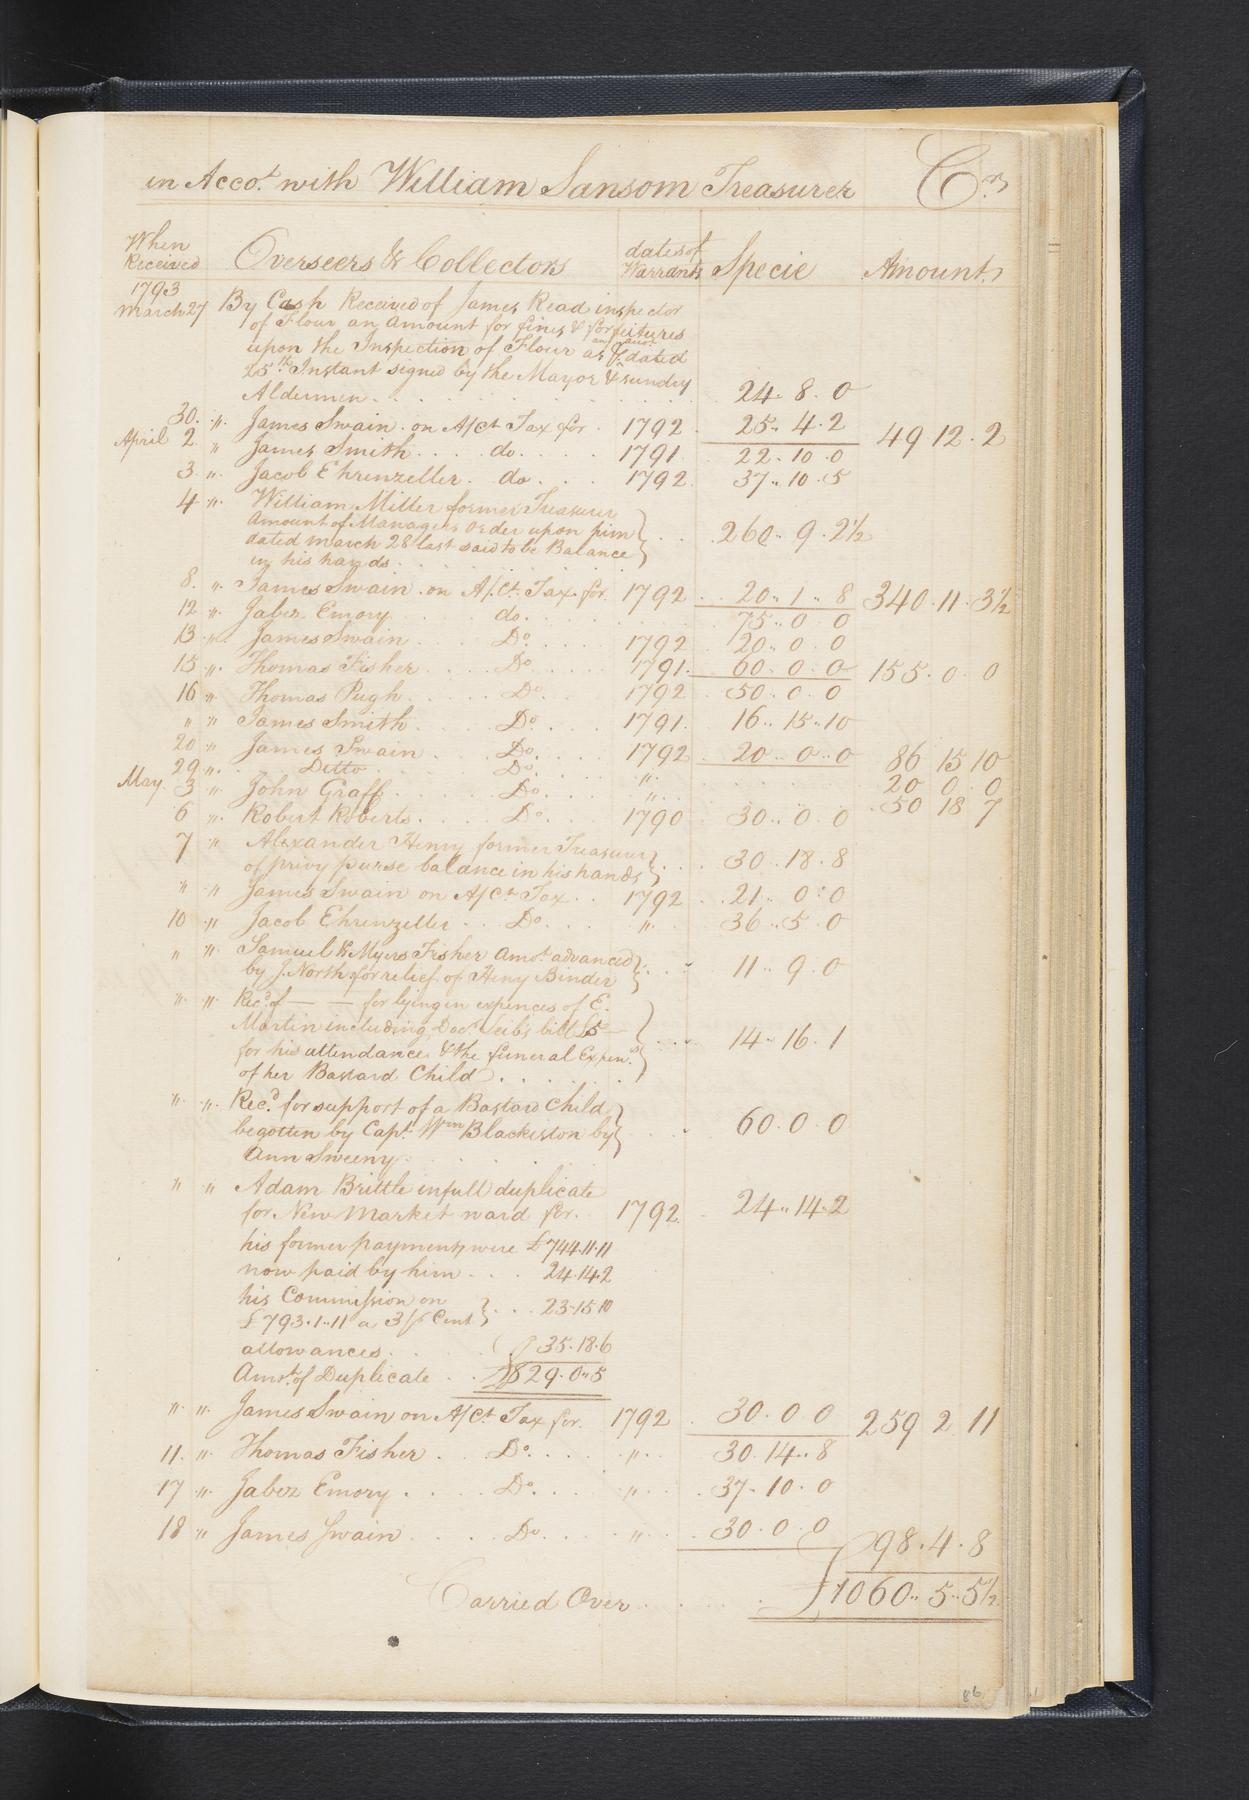 in Acco.t with William Sansom Treasurer Cr.
When Received Overseers & Collectors dates of Warrants Specie Amount
1793
March 27 By Cash Received of James Read inspector
of Flour an amount for fines & forfeitures
upon the Inspection of Flour as dated
25th Instant signed by the Mayor & sundry
Aldermen 24. 8. 0
30. " James Swain. on A/Ct Tax for 1792 25.. 4. 2 49 12. 2
April 2 " James Smith do. 1791. 22. 10. 0
3 " Jacob Ehrenzeller. do. 1792. 37.. 10. 5
4 " William Miller former Treasurer
Amount of Managers order upon him
dated March 28 last said to be Balance
in his hands 260.. 9. 2½
8. " James Swain. on A/Ct. Tax. for 1792 20.. 1.. 8 340. 11. 3½
12 " Jabez Emory do. 75.. 0. 0
13 " James Swain Do 1792 20.. 0. 0
15 " Thomas Fisher Do 1791. 60. 0. 0 155. 0. 0
16 " Thomas Pugh Do 1792 50. 0. 0
" " James Smith Do 1791. 16.. 15.. 10
20 " James Swain Do. 1792 20.. 0.. 0 86 15 10
29 " Ditto Do. " 20 0 0
May 3 " John Graff Do. " 50 18 7
6 " Robert Roberts Do. 1790 30.. 0. 0
7 " Alexander Henry former Treasurer
of privy purse balance in his hands 30.. 18. 8
" " James Swain on A/Ct Tax 1792 21.. 0: 0
10 " Jacob Ehrenzeller Do " 36.. 5. 0
" " Samuel & Myers Fisher Amot advanced
by J. North for relief of Heny Binder 11.. 9. 0
" " Recd of — — for lying in expences of E.
Martin including Doct Leib's bill £5—
for his attendance, & the funeral Expens
of her Bastard Child 14.. 16. 1
" " Recd. for support of a Bastard Child
begotten by Capt. Wm Blackiston by
Ann Sweeny 60. 0. 0
" " Adam Brittle in full duplicate
for New Market ward for 1792. 24.. 14. 2
his former payments were £744.11.11
now paid by him 24.14.2
his Commission on
£793.1..11 a 3 ⅌ Cent 23.15.10
allowances 35.18.6
Amot. of Duplicate £829.0..5
" " James Swain on A/Ct. Tax for 1792 30. 0 0 259 2 11
11. " Thomas Fisher Do. " 30 14.. 8
17 " Jabez Emory Do. " 37. 10. 0
18 " James Swain Do. " 30. 0. 0 98. 4. 8
Carried Over £1060.. 5.. 5½
86